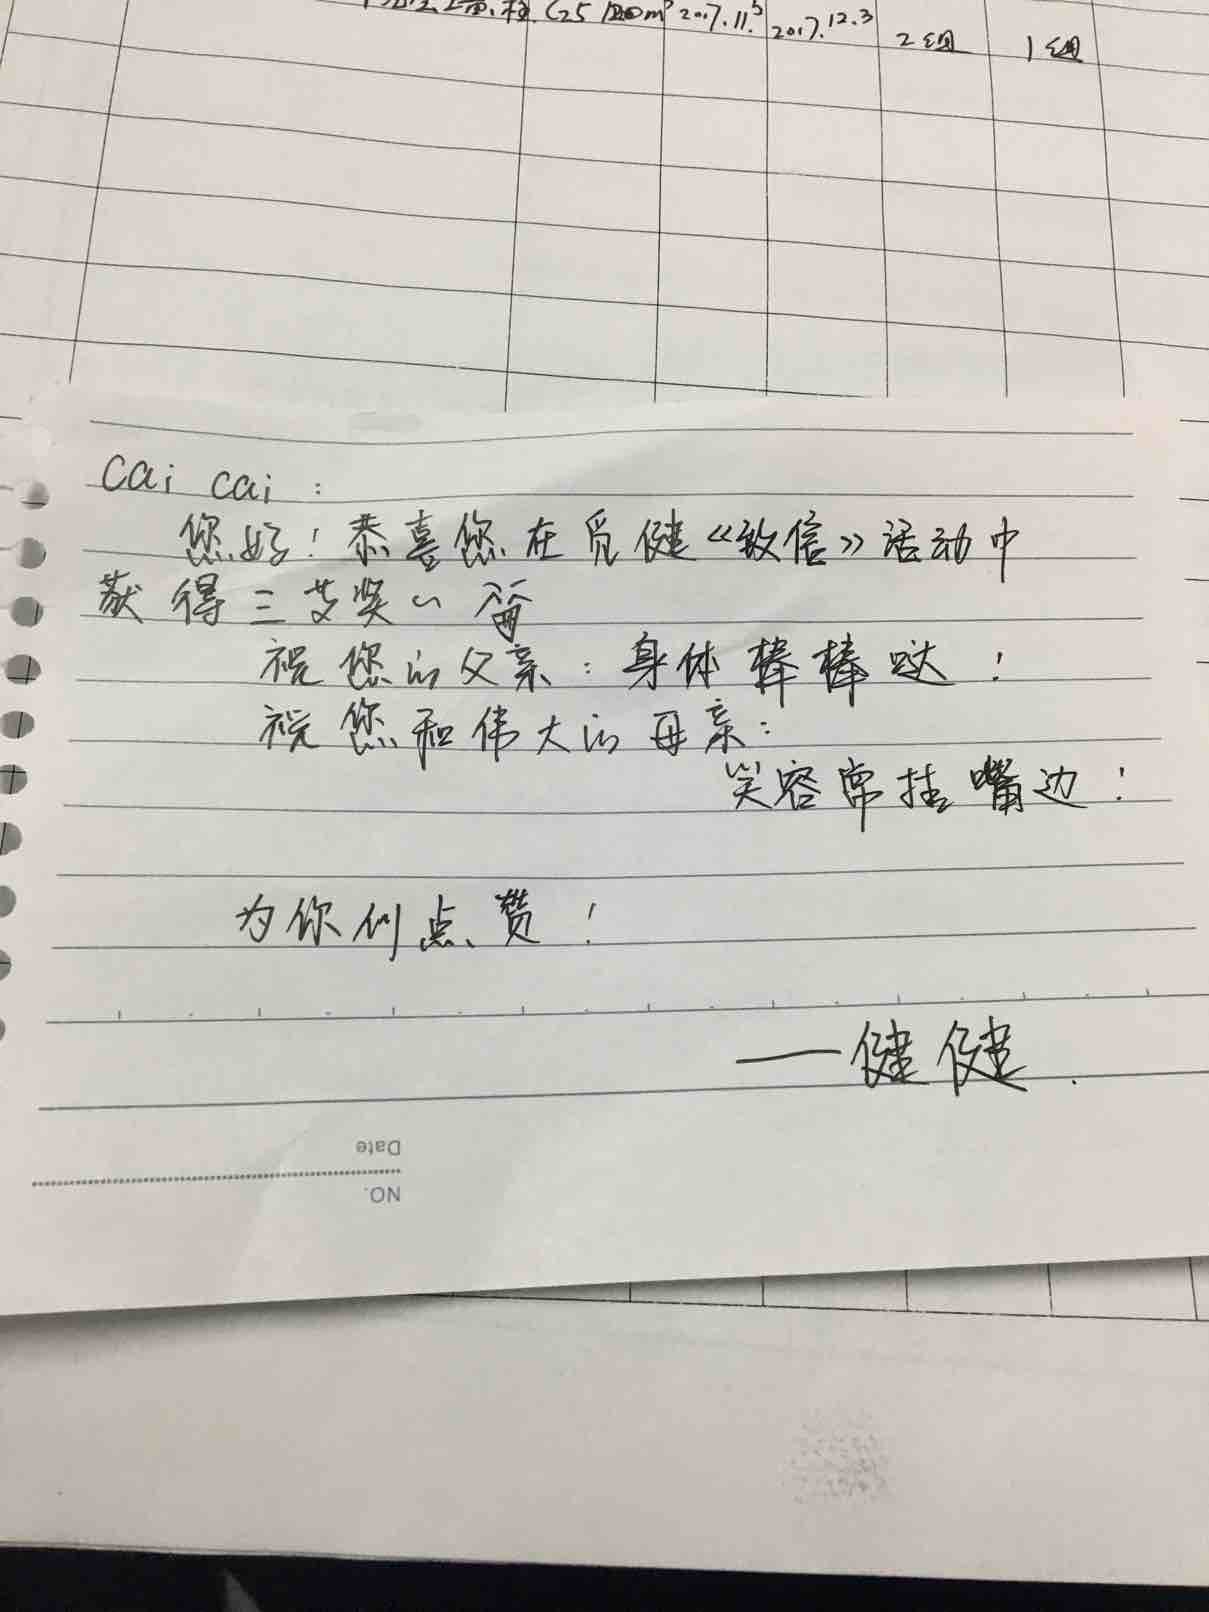 C25 120m³ 2017.11.5 2017.12.3 2组 1组
Cai Cai：
您好！恭喜您在觅健《致信》活动中
获得三等奖～
祝您的父亲：身体棒棒哒！
祝您和伟大的母亲：
笑容常挂嘴边！
为你们点赞！
——健健.
Date
NO.